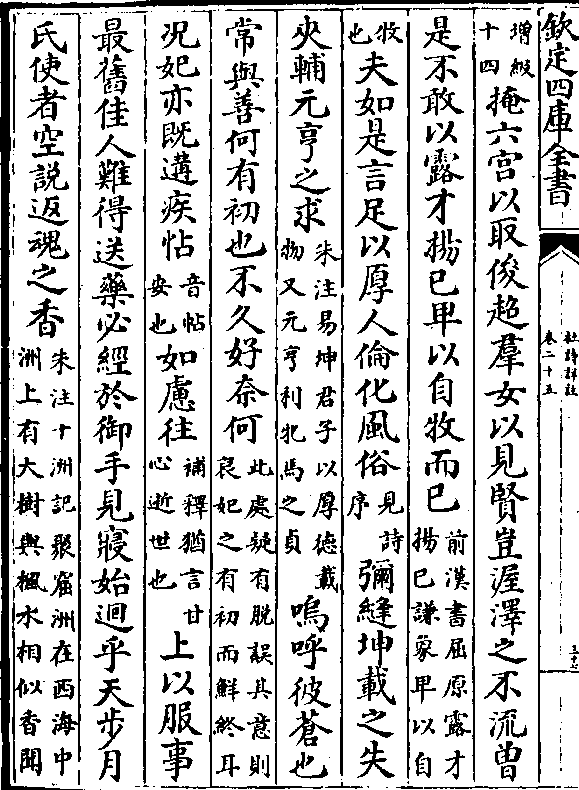 欽定四庫全書
杜詩詳註
卷二十五
增級
十四
掩六宮以取俊超羣女以見賢豈渥澤之不流曾
是不敢以露才揚已卑以自牧而已
前漢書屈原露才
揚已謙象卑以自
牧
也
夫如是言足以厚人倫化風俗
見詩
序
彌縫坤載之失
夾輔元亨之求
朱注易坤君子以厚德載
物又元亨利牝馬之貞
嗚呼彼蒼也
常與善何有初也不久好奈何
此處疑有脱誤其意則
哀妃之有初而鮮終耳
况妃亦既遘疾怗
音帖
安也
如慮往
補釋猶言甘
心逝世也
上以服事
最舊佳人難得送藥必經於御手見寢始迴乎天步月
氏使者空説返魂之香
朱注十洲記聚窟洲在西海中
洲上有大樹與楓水相似香聞